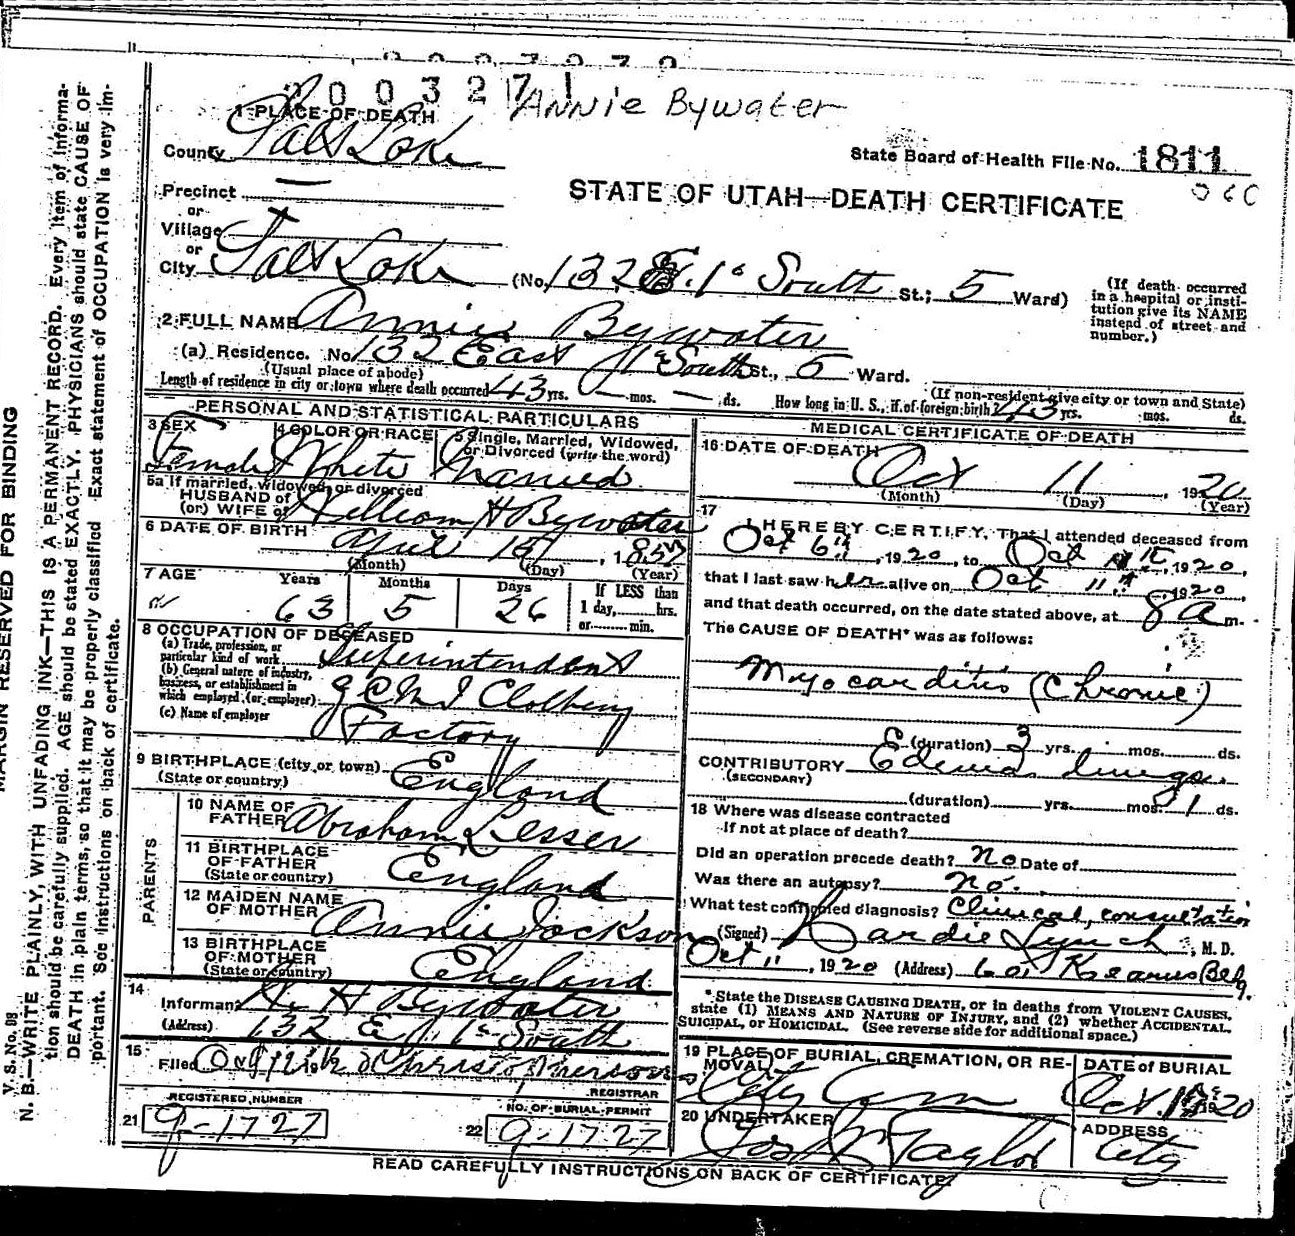 2003271
Annie Bywater
1 PLACE OF DEATH
County Salt Lake
State Board of Health File No. 1811
Precinct —
STATE OF UTAH—DEATH CERTIFICATE
or
Village
or
City Salt Lake (No. 132 E. 1st South St.; 5 Ward)
(If death occurred in a hospital or institution give its NAME instead of street and number.)
2 FULL NAME Annie Bywater
(a) Residence. No. 132 East 1st South St., 5 Ward.
(Usual place of abode)
(If non-resident give city or town and State)
Length of residence in city or town where death occurred 43 yrs. — mos. — ds. How long in U. S., if of foreign birth? 43 yrs. mos. ds.
PERSONAL AND STATISTICAL PARTICULARS
3 SEX Female
4 COLOR OR RACE White
5 Single, Married, Widowed, or Divorced (write the word) Married
5a If married, widowed, or divorced
HUSBAND of
(or) WIFE of William H Bywater
6 DATE OF BIRTH April 15
(Month) (Day) (Year)
7 AGE Years 63 Months 5 Days 26
If LESS than 1 day, hrs. or min.
8 OCCUPATION OF DECEASED
(a) Trade, profession, or particular kind of work Superintendent
(b) General nature of industry, business, or establishment in which employed (or employer) Z C M I Clothing
(c) Name of employer Factory
9 BIRTHPLACE (city or town) England
(State or country)
PARENTS
10 NAME OF FATHER Abraham Lesser
11 BIRTHPLACE OF FATHER England
(State or country)
12 MAIDEN NAME OF MOTHER Annie Jackson
13 BIRTHPLACE OF MOTHER England
(State or country)
14
Informant W H Bywater
(Address) 132 E 1st South
15
Filed
REGISTRAR
REGISTERED NUMBER
21 9-1727
NO. OF BURIAL PERMIT
22 9-1727
MEDICAL CERTIFICATE OF DEATH
16 DATE OF DEATH Oct 11, 1920
(Month) (Day) (Year)
17 I HEREBY CERTIFY, That I attended deceased from
Oct 6th, 1920, to Oct 11th, 1920,
that I last saw her alive on Oct 11th, 1920,
and that death occurred, on the date stated above, at 8 a m.
The CAUSE OF DEATH* was as follows:
Myocarditis (Chronic)
(duration) 3 yrs. mos. ds.
CONTRIBUTORY Edema lungs
(SECONDARY)
(duration) yrs. mos. 1 ds.
18 Where was disease contracted
If not at place of death?
Did an operation precede death? No Date of
Was there an autopsy? No.
What test confirmed diagnosis? Clinical, consultation
(Signed) Hardie Lynch, M. D.
Oct 11, 1920 (Address) 601 Kearns Bldg.
* State the DISEASE CAUSING DEATH, or in deaths from VIOLENT CAUSES,
state (1) MEANS AND NATURE OF INJURY, and (2) whether ACCIDENTAL,
SUICIDAL, or HOMICIDAL. (See reverse side for additional space.)
19 PLACE OF BURIAL, CREMATION, OR REMOVAL City Cem
DATE of BURIAL Oct. 1920
20 UNDERTAKER Jos Wm Taylor
ADDRESS City
READ CAREFULLY INSTRUCTIONS ON BACK OF CERTIFICATE
MARGIN RESERVED FOR BINDING
V. S. No. 98
N. B.—WRITE PLAINLY, WITH UNFADING INK—THIS IS A PERMANENT RECORD. Every item of information should be carefully supplied. AGE should be stated EXACTLY. PHYSICIANS should state CAUSE OF DEATH in plain terms, so that it may be properly classified. Exact statement of OCCUPATION is very important. See instructions on back of certificate.